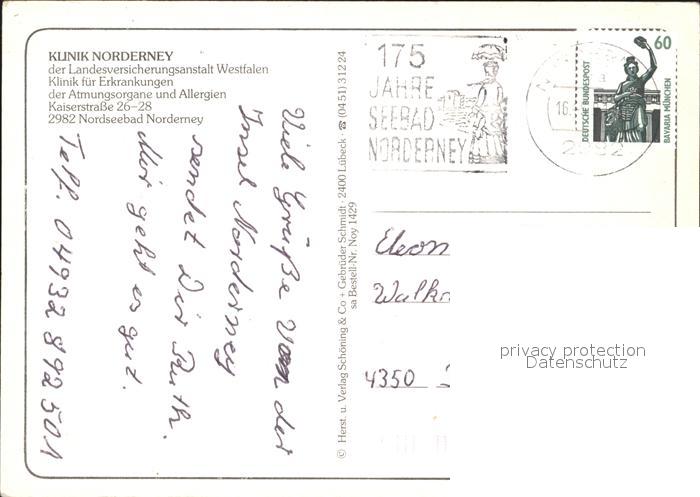 KLINIK NORDERNEY
der Landesversicherungsanstalt Westfalen
Klinik für Erkrankungen
der Atmungsorgane und Allergien
Kaiserstraße 26–28
2982 Nordseebad Norderney
Viele Grüße von der
Insel Norderney
sendet Dir Ruth.
Mir geht es gut.
Telf. 04932 892501
© Herst. u. Verlag Schöning & Co + Gebrüder Schmidt · 2400 Lübeck · ☎ (0451) 31224
sa Bestell-Nr. Noy 1429
175
JAHRE
SEEBAD
NORDERNEY
16.
2982
60
DEUTSCHE BUNDESPOST
BAVARIA MÜNCHEN
Eleon
Walk
4350
privacy protection
Datenschutz